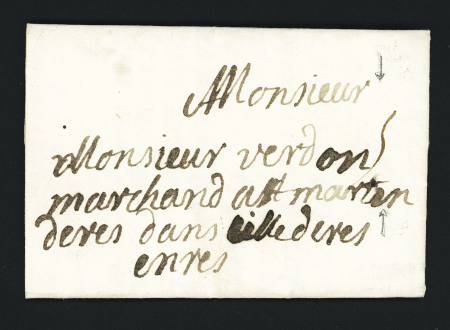 Monsieur
Monsieur verdon
marchand a st marten
deres dans lille deres
enres